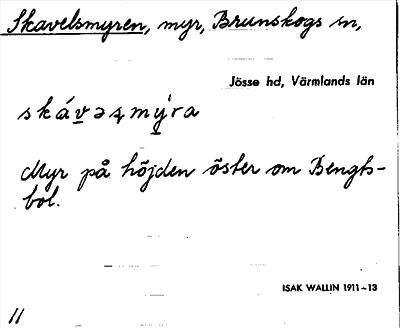 Skavelsmyren, myr, Brunskogs sn,
Jösse hd, Värmlands län
skáv̲əʂmý̲ra
Myr på höjden öster om Bengts-
bol.
ISAK WALLIN 1911-13
11